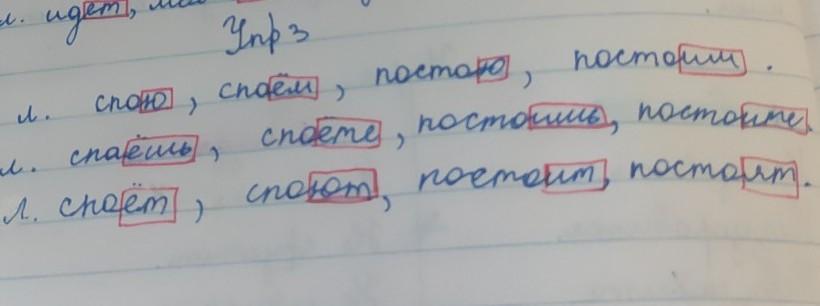 л. идет,
Упр 3
л. спою, споём, постою, постоим.
л. споёшь, споёте, постоишь, постоите.
л. споёт, споют, постоит, постоят.